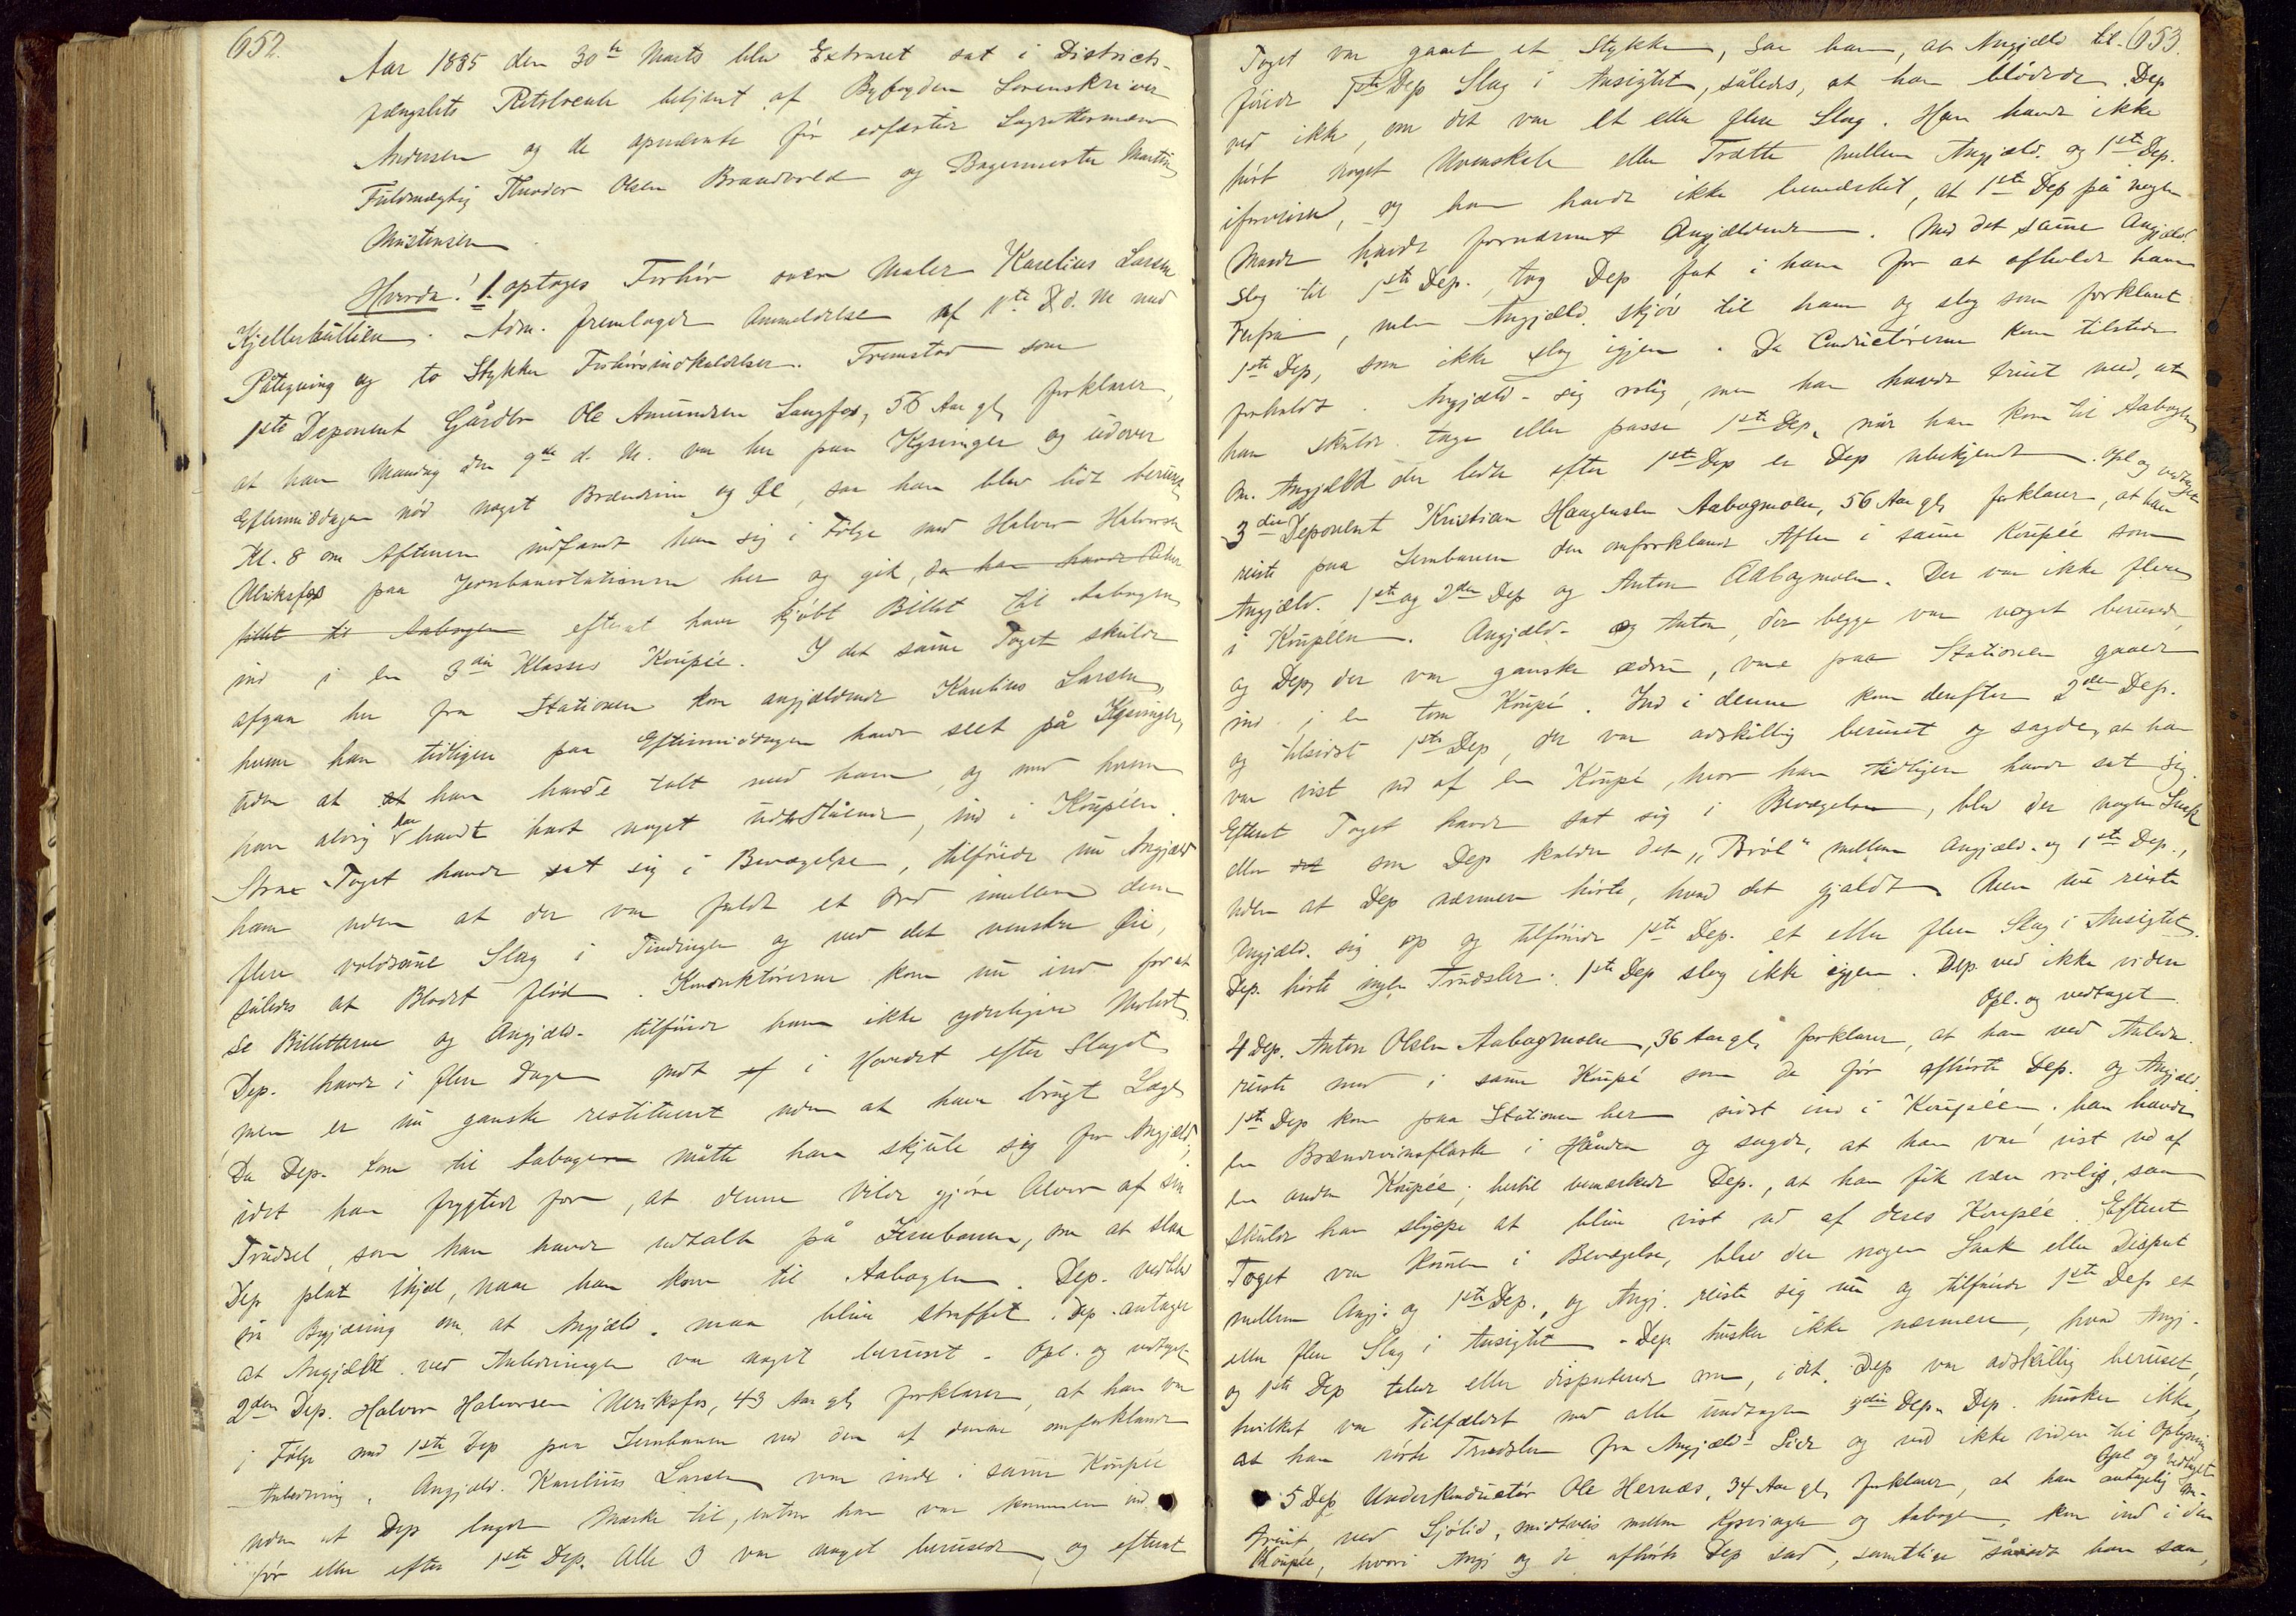 652.
Aar 1885 den 30te Marts blev Extraret sat i Districts-
fængslets Retslocale betjent af Byfogden Sorenskriver
Andersen og de opnævnte før edfæstede Lagrettesmænd
Fuldmægtig Theodor Olsen Brandvold og Bagermester Martin
Christensen
Hvorda! 1. optages Forhør over Maler Karelius Larsen
Kjellerhultilen. Adm. fremlagde Anmeldelse af 11te d. M. med
Påtegning og to Stykker Forhørsindkaldelser. Fremstod som
1ste Deponent Gårdbr Ole Amundsen Langfos, 56 Aar gl, forklarer,
at han Mandag den 9de d. M. var her paa Kgsvinger og udover
Eftermiddagen nød noget Brændevin og Øl, saa han blev lidt beruset,
Kl. 8 om Aftenen indfandt han sig i Følge med Halvor Halvorsen
Ulriksfos paa Jernbanestationen her og gik, da han havde Retur
billet til Aabogen efterat have kjøbt Billet til Aabogen
ind i en 3die Klasses Koupée. I det samme Toget skulde
afgaa her fra Stationen kom angjældende Karelius Larsen,
hvem han tidligere paa Eftermiddagen havde seet på Kgsvinger,
uden at at han havde talt med ham, og med hvem
han aldrig har havdt havt noget udestående, ind i Koupéen.
Strax Toget havde sat sig i Bevægelse, tilføiede nu Angjæld
ham uden at der var faldt et Ord imellem dem
flere voldsomme Slag i Tindingen og ved det venstre Øie,
således at Blodet flød. Konduktørerne kom nu ind for at
se Billetterne og Angjæld. tilføiede ham ikke yderligere Molest.
Dep. havde i flere Dage ondt af i Hovedet efter Slaget
men er nu ganske restitueret uden at have brugt Læge
Da Dep. kom til Aabogen måtte han skjule sig for Angjæld;
idet han frygtede for, at denne vilde gjøre Alvor af sin
Trudsel, som han havde udtalt på Jernbanen, om at slaa
Dep plat ihjel, naar han kom til Aabogen. Dep. vedblev
sin Begjæring om at Angjæld. maa blive straffet. Dep. antager
at Angjæld. ved Anledningen var noget beruset. Opl. og vedtaget.
2den Dep. Halvor Halvorsen Ulriksfos, 43 Aar gl, forklarer, at han var
i Følge med 1ste Dep paa Jernbanen ved den af denne omforklarede
Anledning. Angjæld. Karelius Larsen var inde i samme Koupée
uden at Dep lagde Mærke til, enten han var kommen ind
før eller efter 1ste Dep. Alle 3 var noget berusede, og efterat
653.
Toget var gaaet et Stykke, saa han, at Angjæld til-
føiede 1ste Dep Slag i Ansigtet, således, at han blødede. Dep
ved ikke, om det var et eller flere Slag. Han havde ikke
hørt noget Uvenskab eller Trætte mellem Angjæld. og 1ste Dep.
iforveien, og han havde ikke bemærket, at 1ste Dep på nogen
Maade havde fornærmet Angjældende. Med det samme Angjæld
slog til 1ste Dep., tog Dep fat i ham for at afholde ham
derfra, men Angjæld. skjøv til ham og slog som forklaret
1ste Dep, som ikke slog igjen. Da Conductørerne kom tilstede
forholdt Angjæld- sig rolig, men han havde truet med, at
han skulde tage eller passe 1ste Dep, når han kom til Aabogen
Om Angjæld der ledte efter 1ste Dep er Dep ubekjendt. Opl og vedtaget
3die Deponent Kristian Haagensen Aabogmoen, 56 Aar gl, forklarer, at han
reiste paa Jernbanen den omforklarede Aften i samme Koupée som
Angjæld. 1ste og 2den Dep og Anton Aabogmoen. Der var ikke flere
i Koupéen. Angjæld- og Anton, der begge var noget berusede,
og Dep, der var ganske ædru, vare paa Stationen gaaede
ind i en tom Koupé. Ind i denne kom derefter 2den Dep.
og tilsidst 1ste Dep, der var adskillig beruset og sagde, at han
var vist ud af en Koupé, hvor han tidligere havde sat sig.
Efterat Toget havde sat sig i Bevægelse, blev der nogen Snak
eller det som Dep kaldte det „Brøl“ mellem Angjæld. og 1ste Dep.,
uden at Dep nærmere hørte, hvad det gjaldt. Men nu reiste
Angjæld. sig op og tilføiede 1ste Dep. et eller flere Slag i Ansigtet.
Dep. hørte ingen Trudsler. 1ste Dep slog ikke igjen. Dep. ved ikke viden
Opl. og vedtaget
4 Dep. Anton Olsen Aabogmoen, 36 Aar gl, forklarer, at han ved Anledn.
reiste med i samme Koupé som de før afhørte Dep. og Angjæld.
1ste Dep kom paa Stationen her sidst ind i Koupéen. han havde
en Brændevinsflaske i Hånden og sagde, at han var vist ud af
en anden Koupée; hertil bemærkede Dep., at han fik være rolig, saa
skulde han slippe at blive vist ud af deres Koupée. Efterat
Toget var kommen i Bevægelse, blev der nogen Snak eller Disput
mellem Angj. og 1ste Dep., og Angj. reiste sig nu og tilføiede 1ste Dep et
eller flere Slag i Ansigtet. Dep husker ikke nærmere, hvad Angj.
og 1ste Dep talede eller disputerede om, idet Dep var adskillig beruset,
hvilket var Tilfældet med alle undtagen 3die Dep. Dep. husker ikke,
at han hørte Trudsler fra Angjæld's Side og ved ikke viden til Oplysning
Opl og vedtaget
5 Dep Underkonductør Ole Hernæs, 34 Aar gl, forklarer, at han antagelig m-
ved Sjølid, midtveis mellem Kgsvinger og Aabogen, kom ind i den
Koupée, hvori Angj og de afhørte Dep sad, samtlige såvidt han saa,